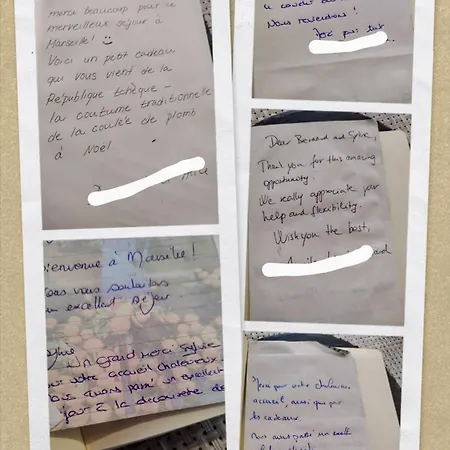 merci beaucoup pour ce
merveilleux séjour à
Marseille! :)
Voici un petit cadeau
qui vous vient de la
République tchèque -
la coutume traditionnelle
de la coulée de plomb
à Noël
Bienvenue à Marseille!
vous vous souhaitons
un excellent séjour.
Sylvie
Un Grand merci Sylvie
pour votre accueil chaleureux.
Nous avons passé un excellent
jour à la découverte de
Nous reviendrons!
Dear Bernard and Sylvie,
Thank you for this amazing
opportunity.
We really appreciate your
help and flexibility.
Wish you the best,
Merci pour votre chaleureux
accueil, ainsi que pour
les cadeaux.
Nous avons passé un